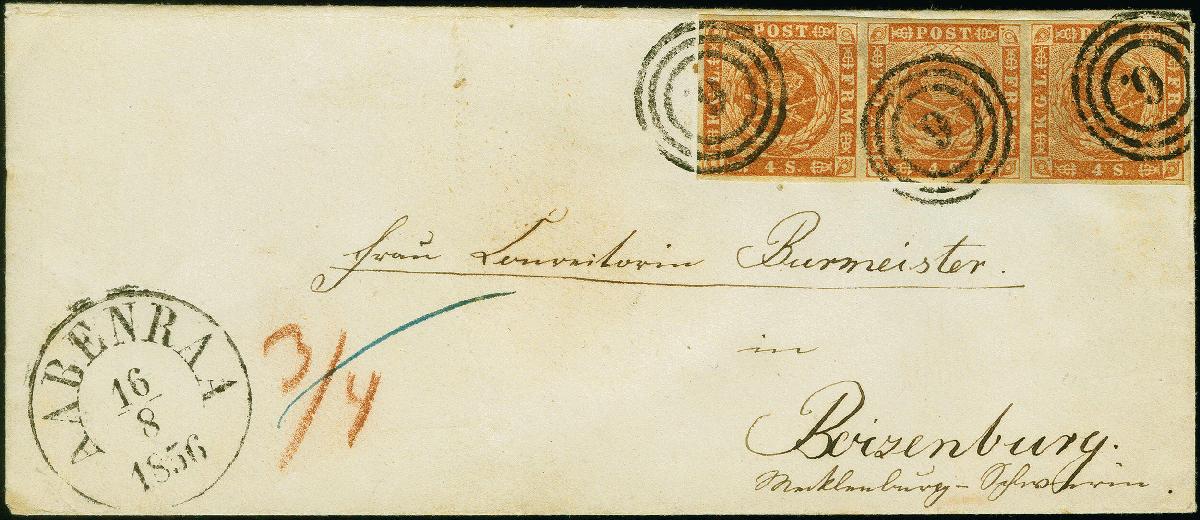 POST POST POST
KGL FRM KGL FRM KGL FRM
9 9 9
4 S. 4 S. 4 S.
Frau Conrectorin Burmeister.
in
Boizenburg.
Mecklenburg-Schwerin.
3/4
AABENRAA
16/8
1856